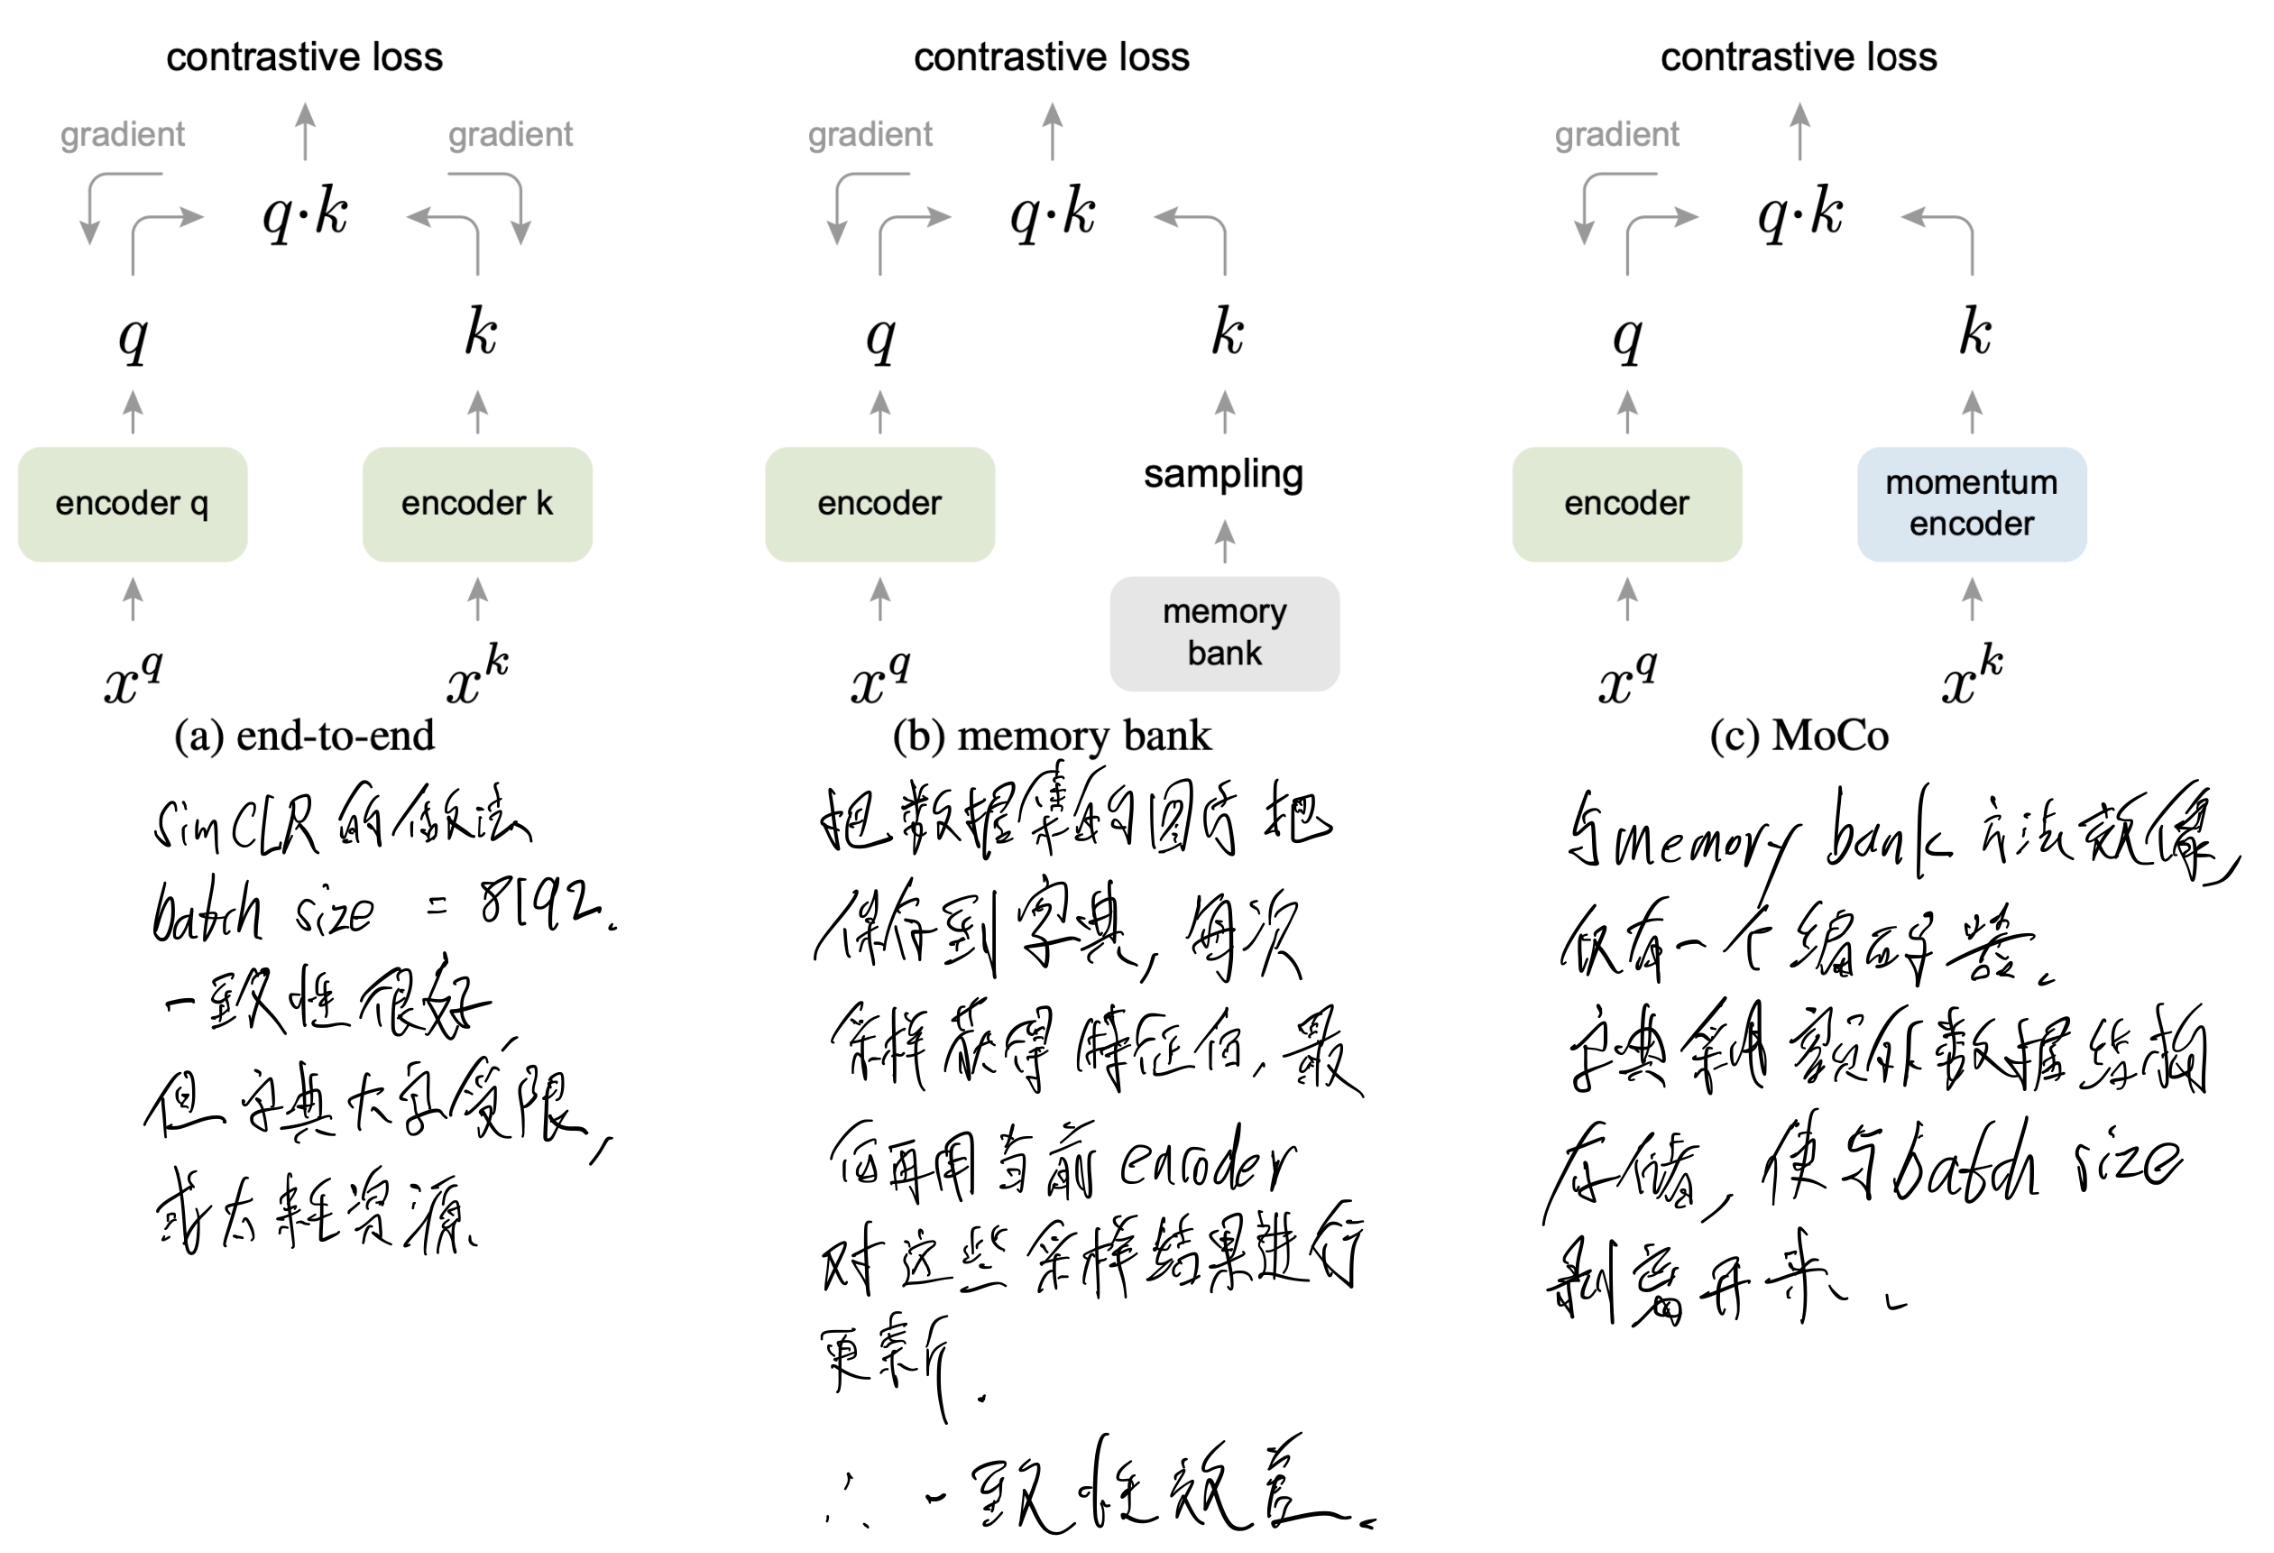 contrastive loss
gradient
gradient
q·k
q
k
encoder q
encoder k
x^q
x^k
(a) end-to-end
simCLR的做法
batch size = 8192.
一致性很好
但字典大小受限,
或太耗资源、
contrastive loss
gradient
q·k
q
k
encoder
sampling
memory
bank
x^q
(b) memory bank
把数据集的图片把
保存到字典, 每次
采样获得特征后, 最
后再用当前 encoder
对这些采样结果进行
更新.
∴ 一致性较差.
contrastive loss
gradient
q·k
q
k
encoder
momentum
encoder
x^q
x^k
(c) MoCo
与memory bank 方法较像,
仅有一个编码器.
字典采用 数据结构
存储, 使与batch size
剥离开来、